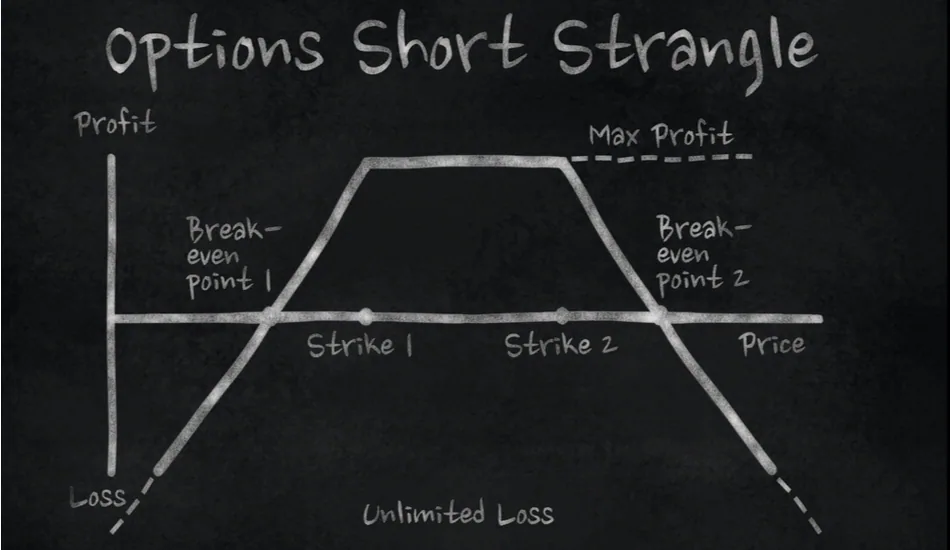 Options Short Strangle
Profit
Max Profit
Break-
even
point 1
Break-
even
point 2
Strike 1
Strike 2
Price
Loss
Unlimited Loss